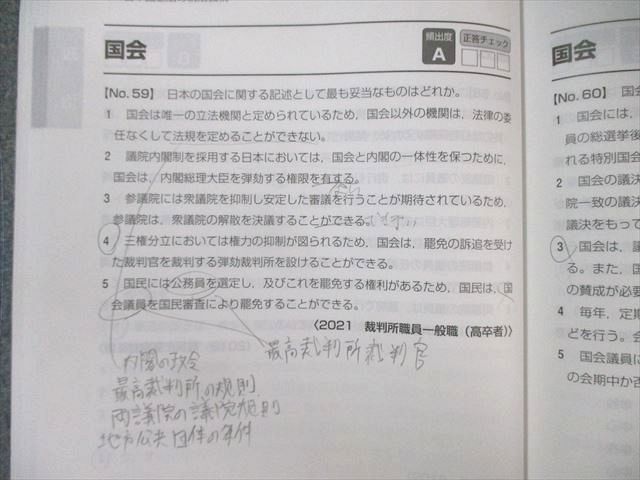 国会
頻出度
A
正答チェック
【No. 59】 日本の国会に関する記述として最も妥当なものはどれか。
1 国会は唯一の立法機関と定められているため，国会以外の機関は，法律の委
任なくして法規を定めることができない。
2 議院内閣制を採用する日本においては，国会と内閣の一体性を保つために，
国会は，内閣総理大臣を弾劾する権限を有する。
3 参議院には衆議院を抑制し安定した審議を行うことが期待されているため，
参議院は，衆議院の解散を決議することができる。
4 三権分立においては権力の抑制が図られるため，国会は，罷免の訴追を受け
た裁判官を裁判する弾劾裁判所を設けることができる。
5 国民には公務員を選定し，及びこれを罷免する権利があるため，国民は，国
会議員を国民審査により罷免することができる。
〈2021 裁判所職員一般職（高卒者）〉
最高裁判所裁判官
内閣の政令
最高裁判所の規則
両議院の議院規則
地方公共団体の条件
国会
【No. 60】 国会
1 国会には，
員の総選挙後
れる特別国会
2 国会の議決
院一致の議決
議決をもって
3 国会は，議
る。また，国
の賛成が必要
4 毎年，定期
どを行う。会
5 国会議員に
の会期中か否